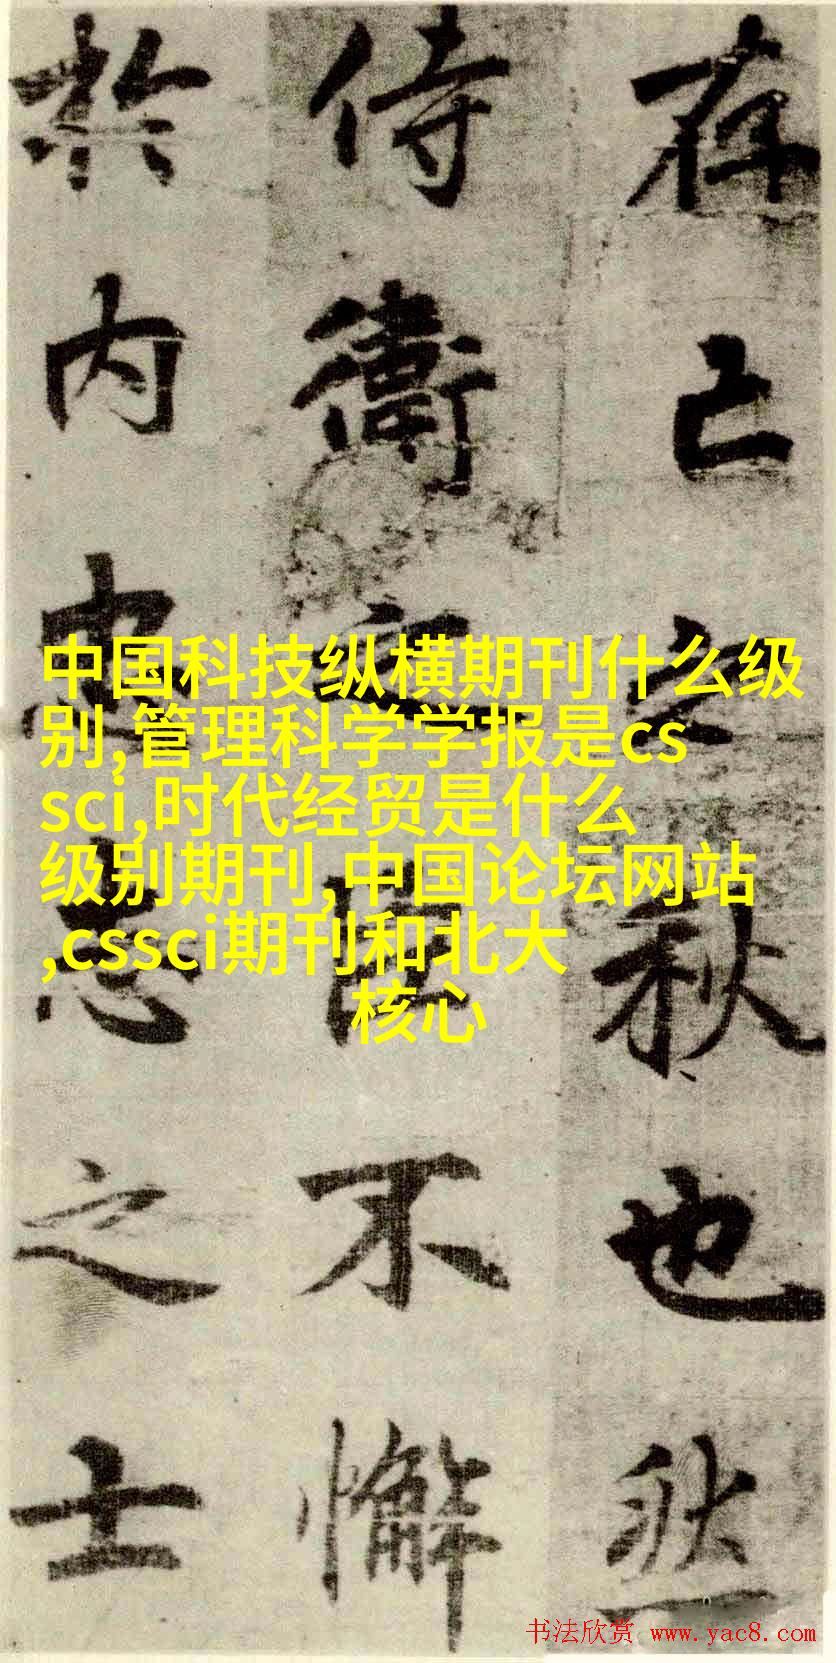 存亡之秋也然
侍衛之臣不懈
於内忠志之士
中国科技纵横期刊什么级
别,管理科学学报是cs
sci,时代经贸是什么
级别期刊,中国论坛网站
,cssci期刊和北大
核心
书法欣赏 www.yac8.com